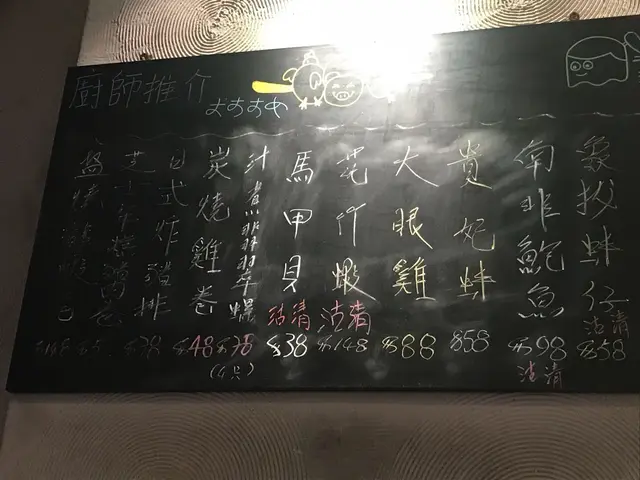 廚師推介
おすすめ
象拔蚌仔
沽清
$58
南非鮑魚
$98
沽清
貴妃蚌
$58
大眼雞
$88
花竹蝦
沽清
$148
馬甲貝
沽清
$38
汁煮翡翠螺
$78
炭燒雞卷
$48
(4只)
日式炸豬排
$78